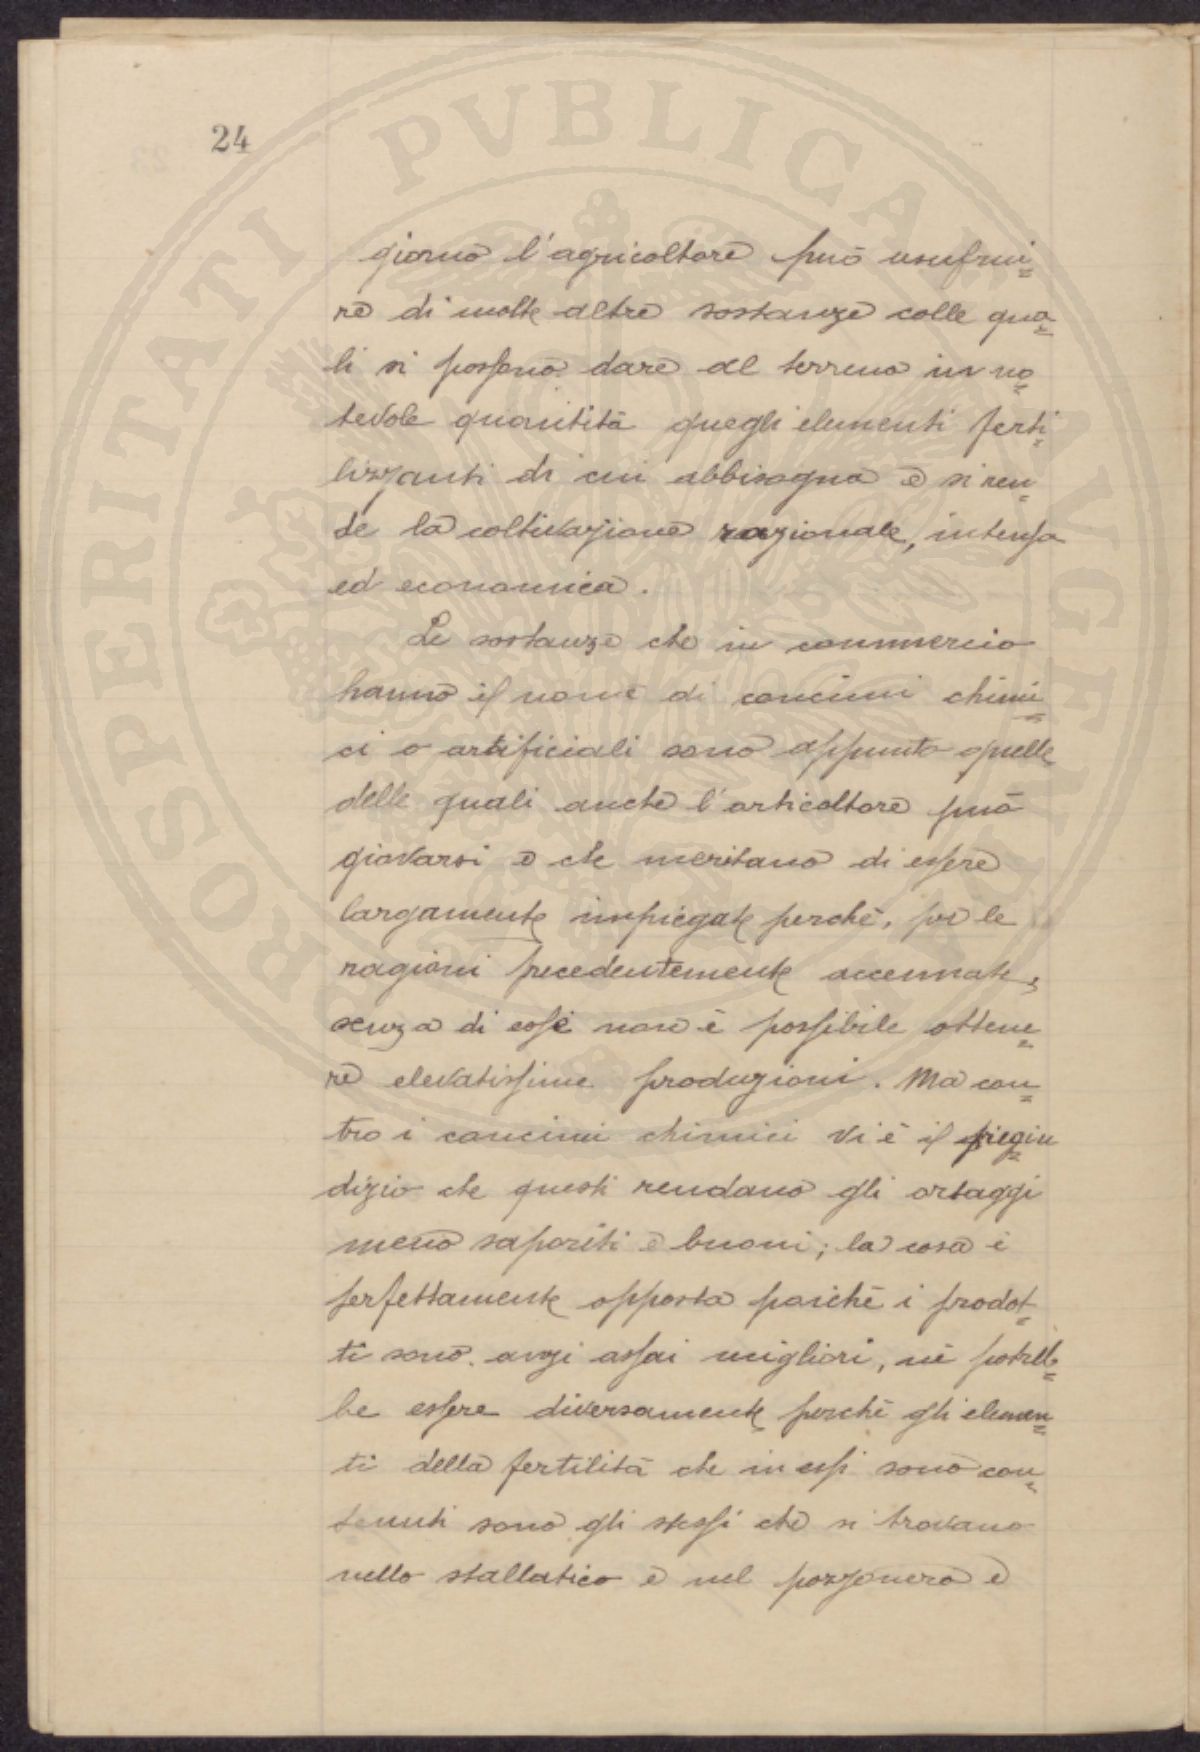 24
PROSPERITATI PVBLICAE AVGENDAE
giorno l'agricoltore può usufrui=
re di molte altre sostanze colle qua=
li si possono dare al terreno in no=
tevole quantità quegli elementi ferti=
lizzanti di cui abbisogna e si ren=
de la coltivazione razionale, intensa
ed economica.
Le sostanze che in commercio
hanno il nome di concimi chimi=
ci o artificiali sono appunto quelle
delle quali anche l'orticoltore può
giovarsi e che meritano di essere
largamente impiegate perchè, per le
ragioni precedentemente accennate,
senza di esse non è possibile ottene=
re elevatissime produzioni. Ma con=
tro i concimi chimici vi è il pregiu=
dizio che questi rendano gli ortaggi
meno saporiti e buoni; la cosa è
perfettamente opposta poichè i prodot=
ti sono anzi assai migliori, nè potreb=
be essere diversamente perchè gli elemen=
ti della fertilità che in essi sono con=
tenuti sono gli stessi che si trovano
nello stallatico e nel pozzonero e